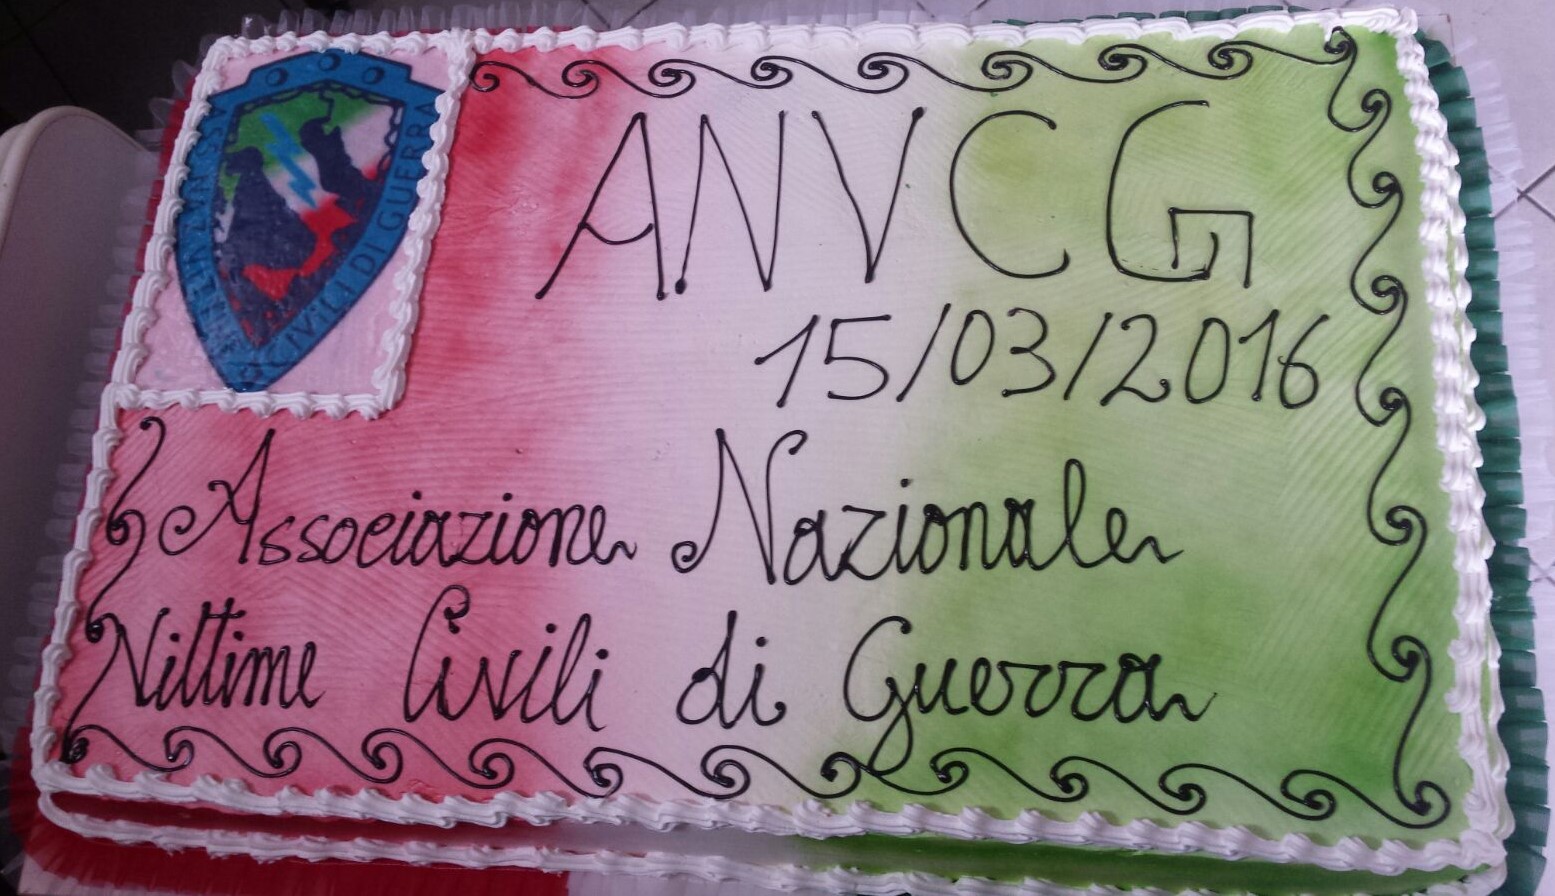 ASS. NAZ. VITTIME CIVILI DI GUERRA
ANVCG
15/03/2016
Associazione Nazionale
Vittime Civili di Guerra